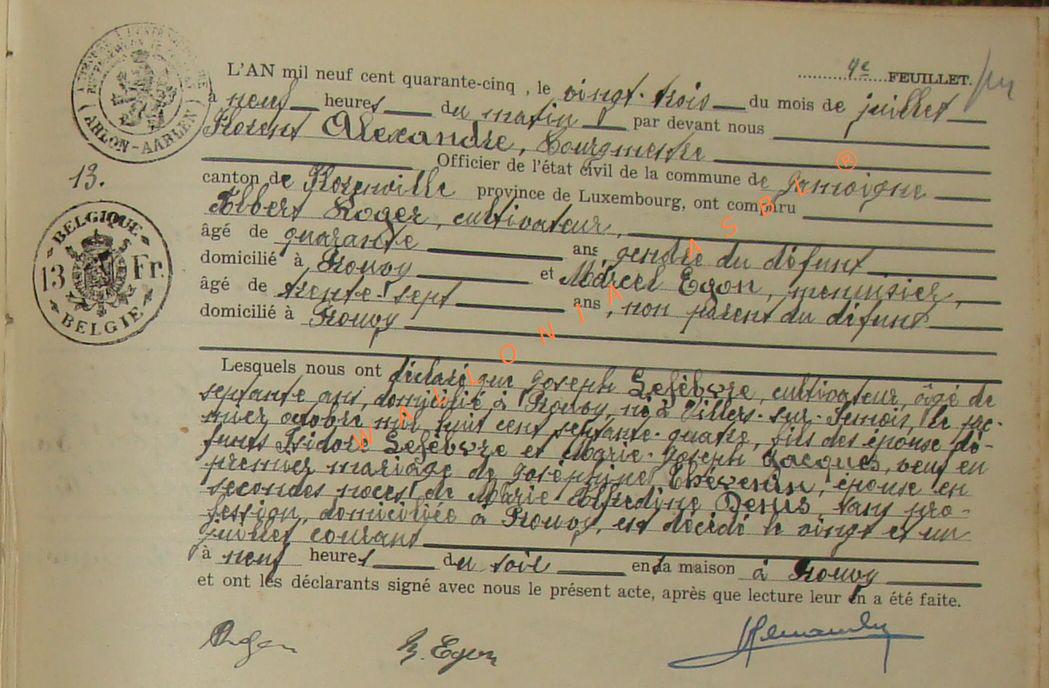 4e FEUILLET.
L'AN mil neuf cent quarante-cinq, le vingt-trois du mois de juillet
à neuf heures du matin par devant nous
Florent Alexandre, bourgmestre
Officier de l'état civil de la commune de Jamoigne
canton de Florenville province de Luxembourg, ont comparu
Albert Roger, cultivateur,
âgé de quarante ans, gendre du défunt
domicilié à Prouvy et Marcel Egon, menuisier,
âgé de trente-sept ans, non parent du défunt
domicilié à Prouvy
Lesquels nous ont déclaré que Joseph Lefèbvre, cultivateur, âgé de
septante ans, domicilié à Prouvy, né à Villers-sur-Semois, le pre-
mier octobre mil huit cent septante-quatre, fils des époux dé-
funts Isidore Lefèbvre et Marie-Joseph Jacques, veuf en
premier mariage de Joséphine Thévenin, épouse en
secondes noces de Marie Denis, sans pro-
fession, domiciliée à Prouvy, est décédé le vingt et un
juillet courant
à neuf heures du soir en sa maison à Prouvy
et ont les déclarants signé avec nous le présent acte, après que lecture leur en a été faite.
M. Egon
13.
ARLON-AARLEN
BELGIQUE
13 Fr.
BELGIE
WALLONIA ASBL ®